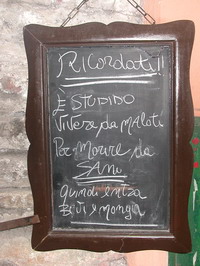 RICORDATI!
È STUPIDO
VIVERE da MALATI
Per MORIRE da
SANI
quindi entra
Bevi e mangia